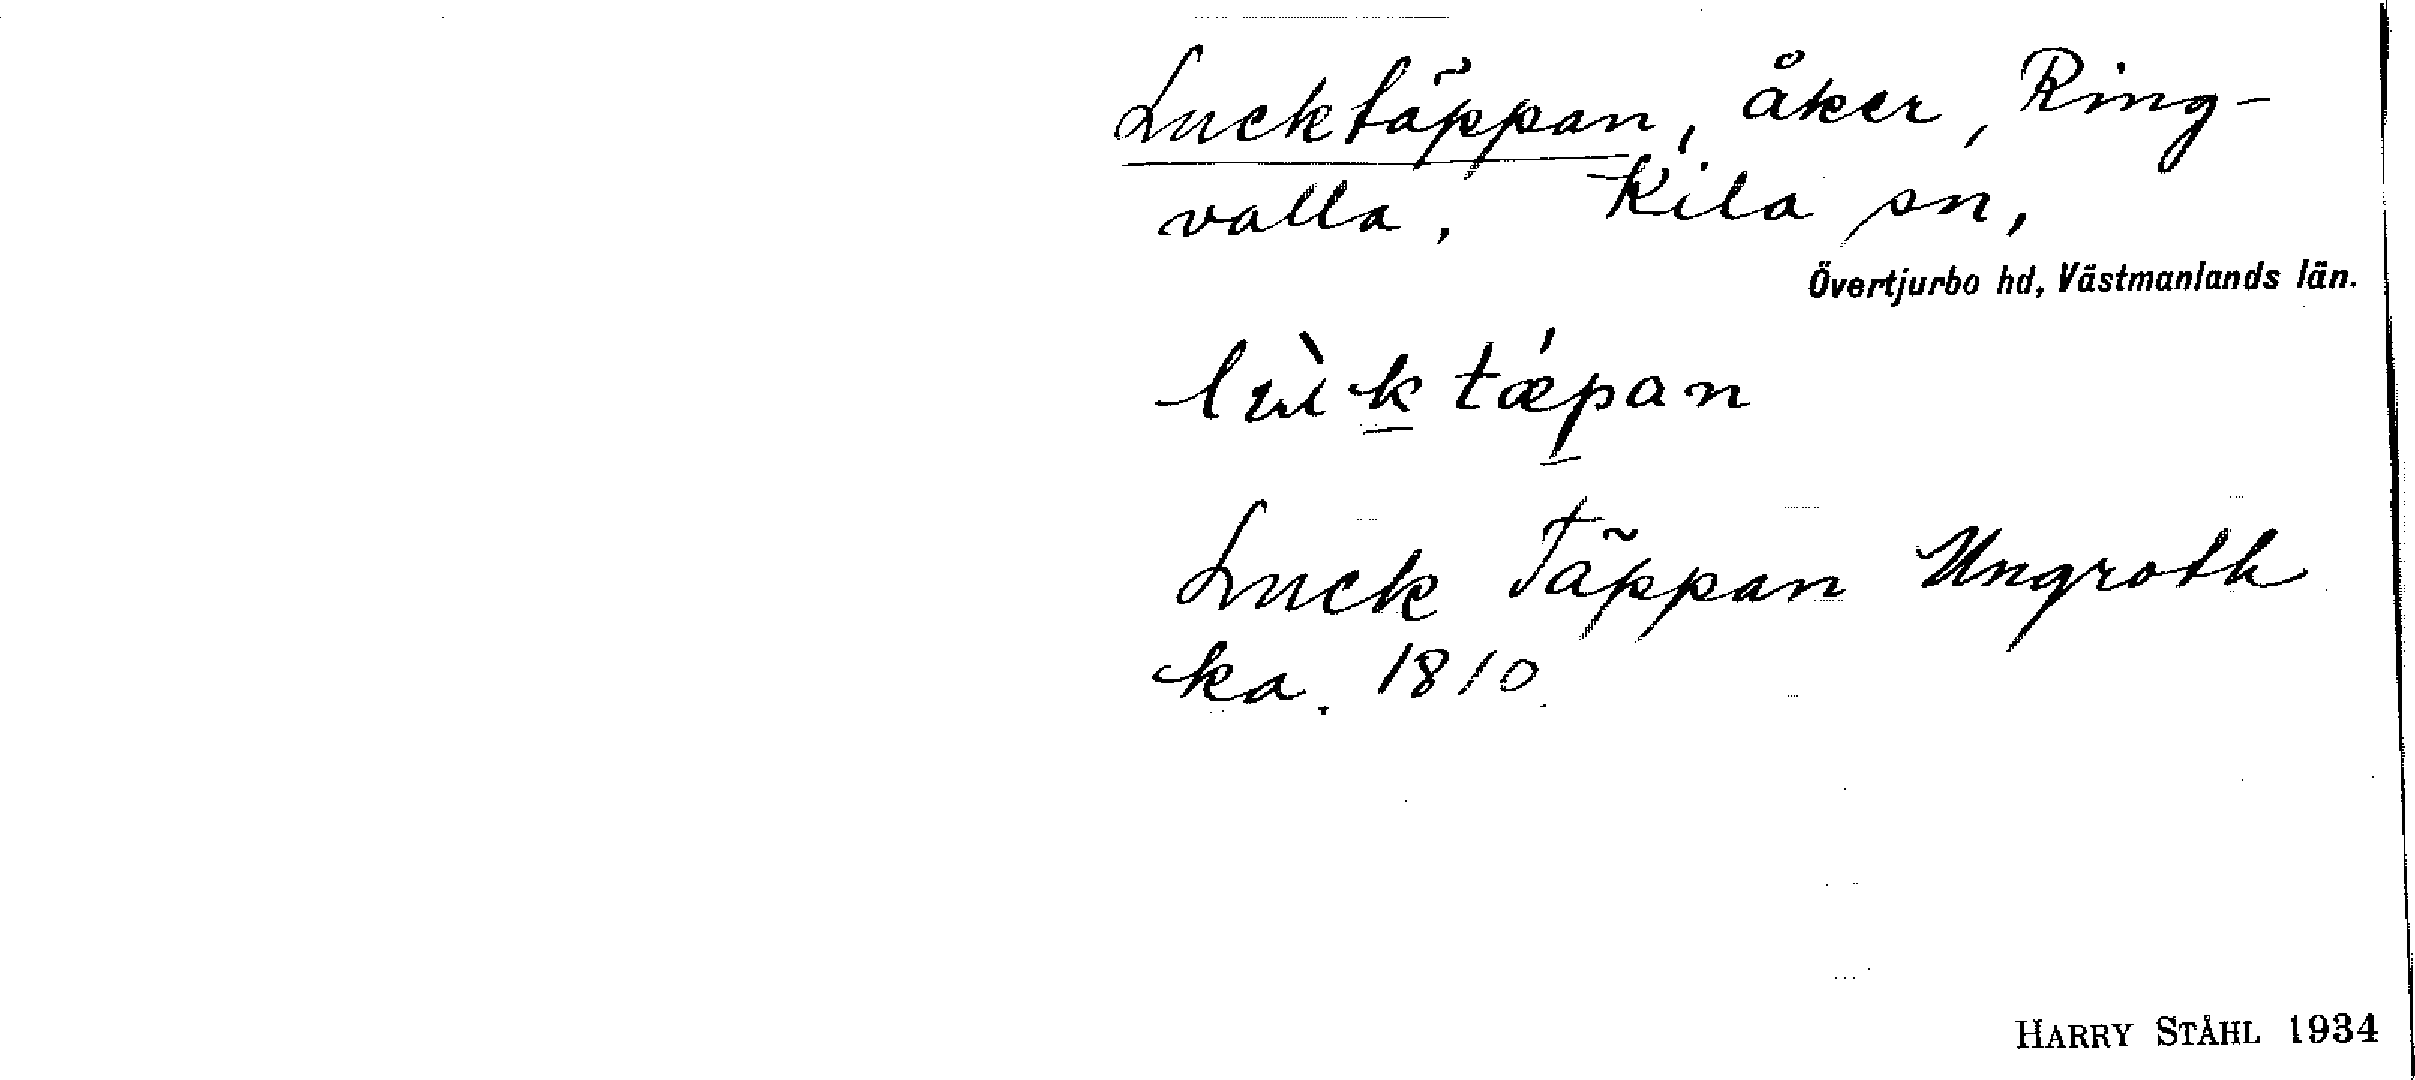 Lucktäppan, åker, Ring-
valla. Kila sn,
Övertjurbo hd, Västmanlands län.
lùktǽpan
Luck Täppan Ungroth
ka. 1810.
HARRY STÅHL 1934